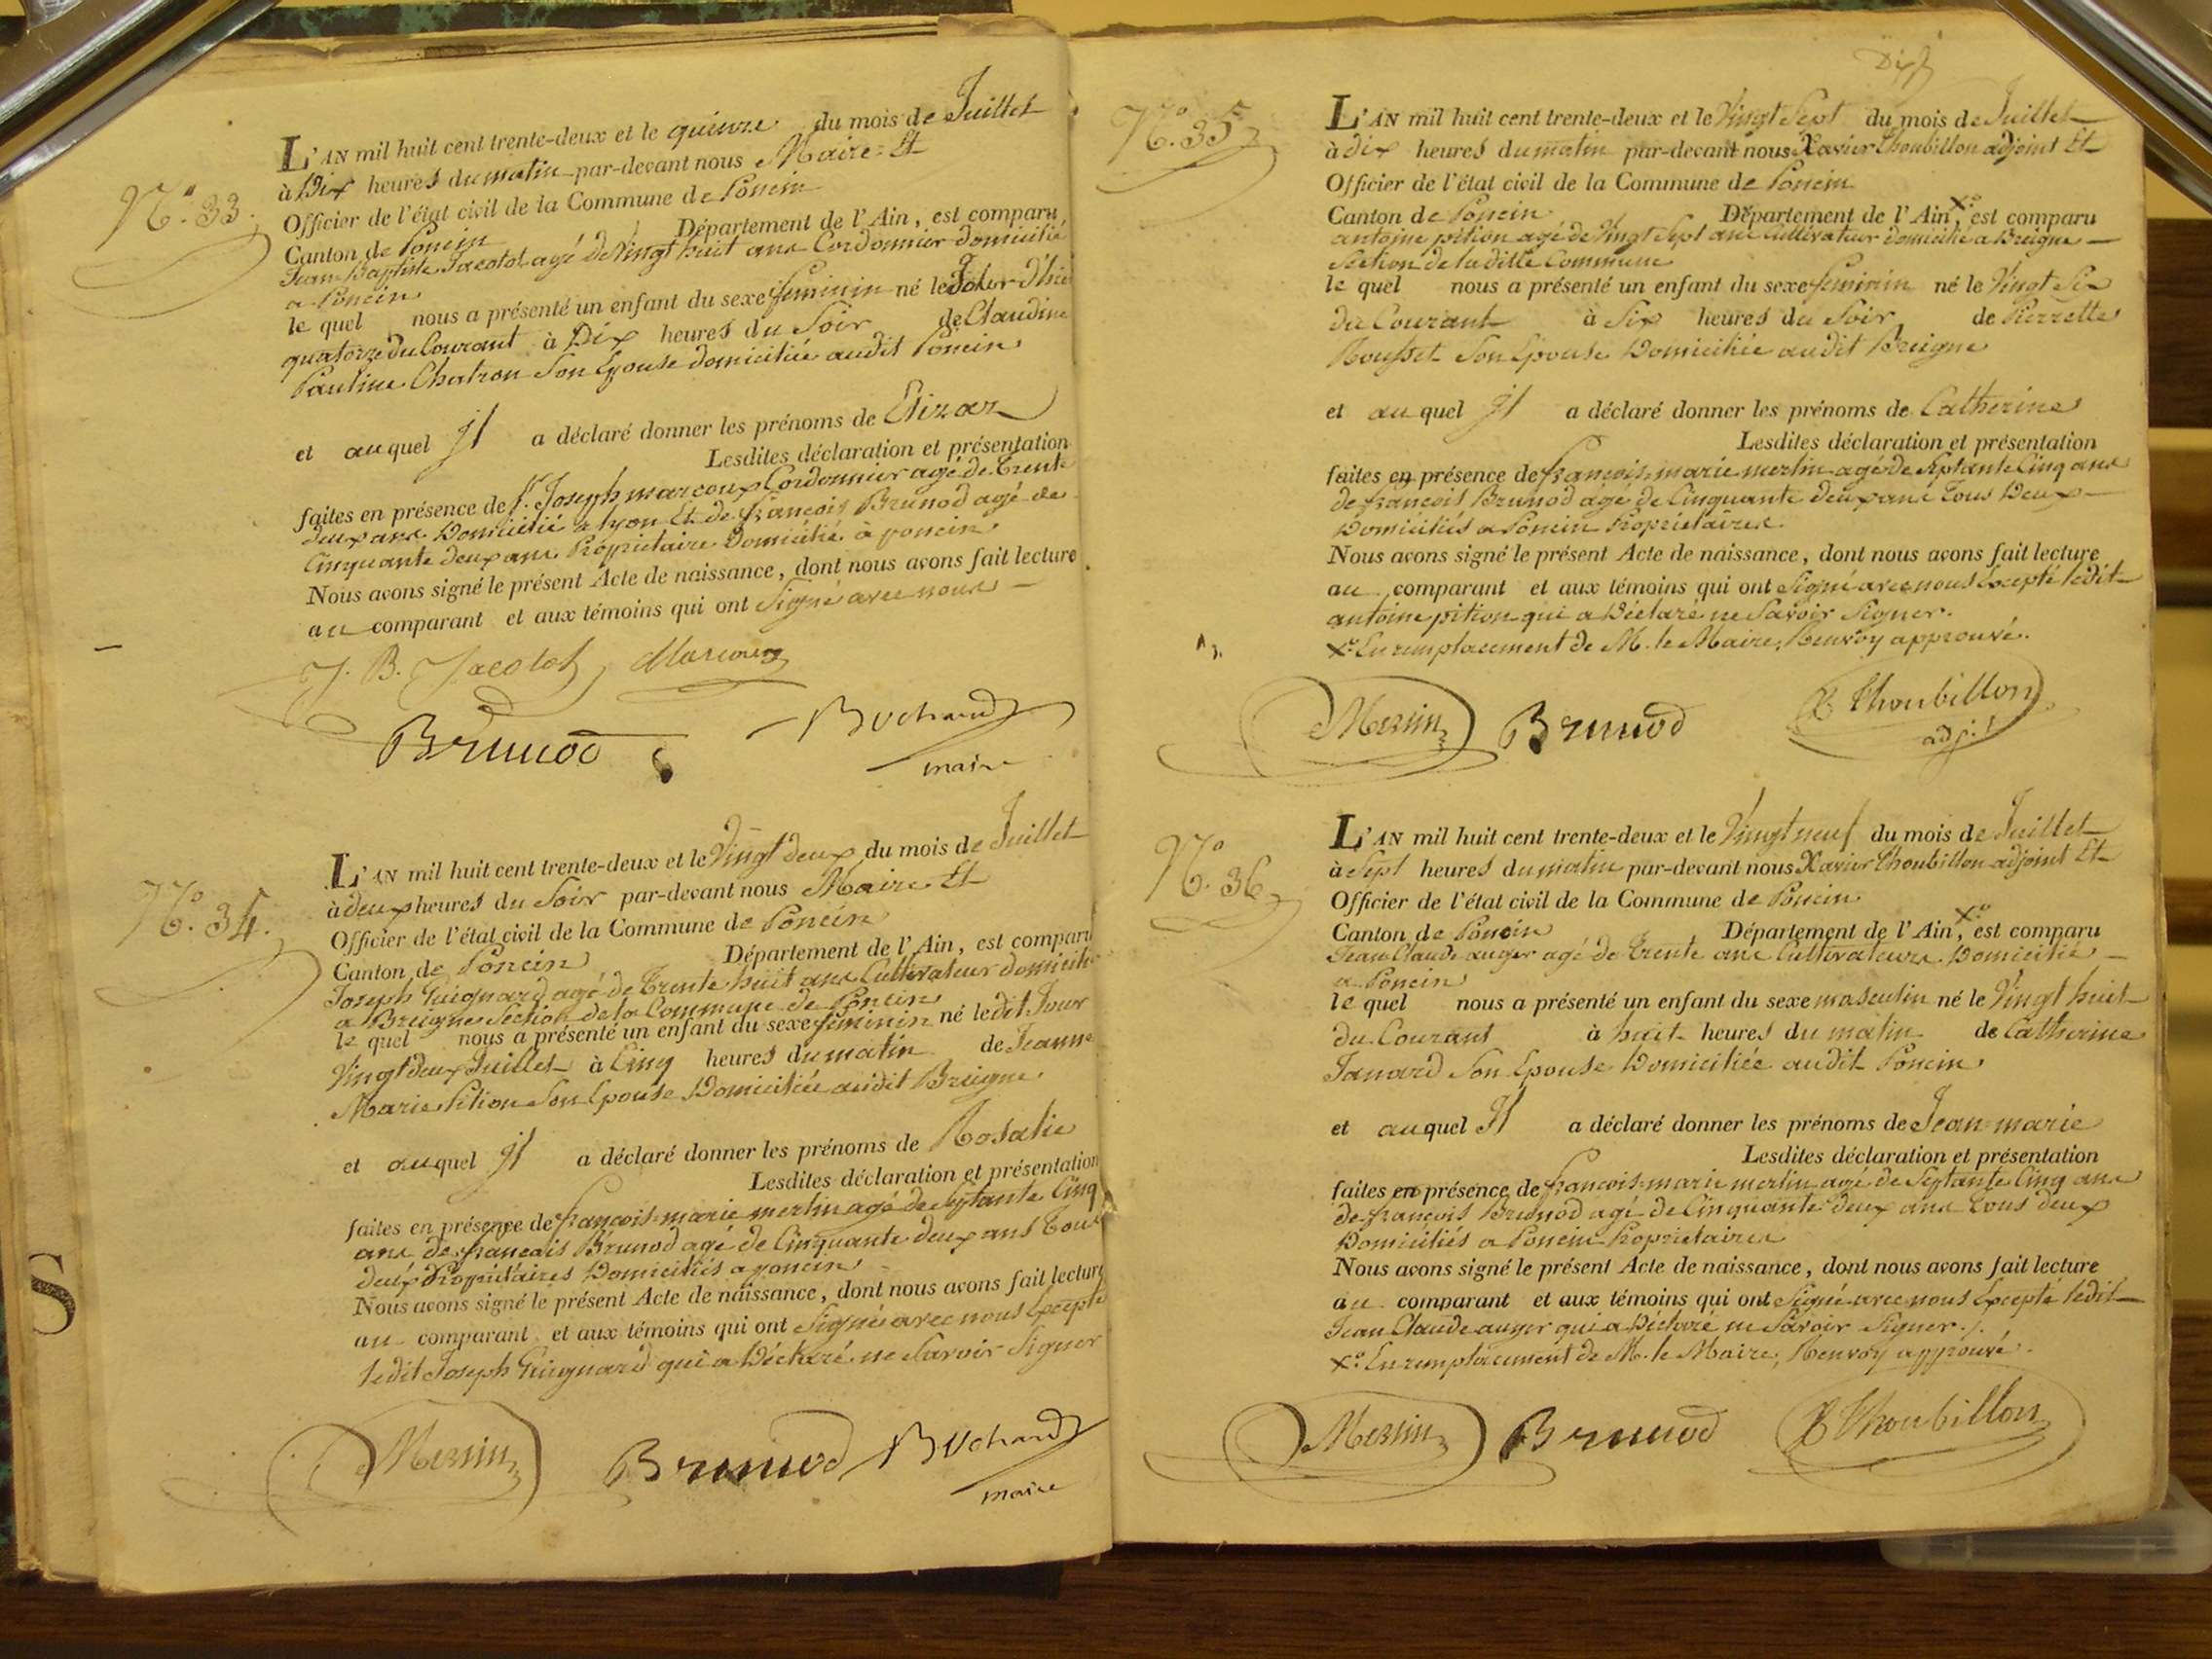 N.° 33.
L'AN mil huit cent trente-deux et le quinze du mois de Juillet
à Dix heures du matin par-devant nous Maire Et
Officier de l'état civil de la Commune de Poncin
Canton de Poncin Département de l'Ain, est comparu
Jean Baptiste Jacotot agé de Vingt huit ans Cordonnier domicilié
a Poncin
le quel nous a présenté un enfant du sexe feminin né le Jour d'hier
quatorze du Courant à Dix heures du Soir de Claudine
Pauline Chatron Son Epouse domiciliée audit Poncin
et au quel Il a déclaré donner les prénoms de
Lesdites déclaration et présentation
faites en présence de Joseph marcoux Cordonnier agé de Trente
deux ans Domicilié a Lyon Et de françois Brunod agé de
Cinquante deux ans Propriétaire Domicilié à poncin
Nous avons signé le présent Acte de naissance, dont nous avons fait lecture
au comparant et aux témoins qui ont Signé avec nous
J. B. Jacotot Marcoux
Brunod Bochard
maire
N.° 34.
L'AN mil huit cent trente-deux et le Vingt deux du mois de Juillet
à deux heures du Soir par-devant nous Maire Et
Officier de l'état civil de la Commune de Poncin
Canton de Poncin Département de l'Ain, est comparu
Joseph Guignard agé de Trente huit ans Cultivateur domicilié
a Breigne Section de la Commune de Poncin
le quel nous a présenté un enfant du sexe féminin né ledit Jour
Vingt deux Juillet à Cinq heures du matin de Jeanne
Marie Pition Son Epouse Domiciliée audit Breigne
et au quel Il a déclaré donner les prénoms de Rosalie
Lesdites déclaration et présentation
faites en présence de françois-marie merlin agé de Septante Cinq
ans de françois Brunod agé de Cinquante deux ans Tous
deux Propriétaires Domiciliés a poncin
Nous avons signé le présent Acte de naissance, dont nous avons fait lecture
au comparant et aux témoins qui ont Signé avec nous Excepté
ledit Joseph Guignard qui a Déclaré ne Savoir Signer
Merlin Brunod Bochard
maire
N.° 35
L'AN mil huit cent trente-deux et le Vingt Sept du mois de Juillet
à dix heures du matin par-devant nous Xavier Thoubillon adjoint Et
Officier de l'état civil de la Commune de Poncin
Canton de Poncin Département de l'Ain, X.° est comparu
antoine pition agé de Vingt Sept ans Cultivateur domicilié a Breigne
Section de ladite Commune
le quel nous a présenté un enfant du sexe feminin né le Vingt Six
du Courant à Six heures du Soir de Pierrette
Rousset Son Epouse Domiciliée audit Breigne
et au quel Il a déclaré donner les prénoms de Catherine
Lesdites déclaration et présentation
faites en présence de françois-marie merlin agé de Septante Cinq ans
de françois Brunod agé de Cinquante deux ans Tous Deux
Domiciliés a Poncin Propriétaires.
Nous avons signé le présent Acte de naissance, dont nous avons fait lecture
au comparant et aux témoins qui ont Signé avec nous Excepté ledit
antoine pition qui a Déclaré ne Savoir Signer.
X.° En remplacement de M. le Maire, Renvoy approuvé.
Merlin Brunod X Thoubillon
adj.t
N.° 36
L'AN mil huit cent trente-deux et le Vingt neuf du mois de Juillet
à Sept heures du matin par-devant nous Xavier Thoubillon adjoint Et
Officier de l'état civil de la Commune de Poncin
Canton de Poncin Département de l'Ain, X.° est comparu
Jean Claude auger agé de Trente ans Cultivateur Domicilié
a Poncin
le quel nous a présenté un enfant du sexe masculin né le Vingt huit
du Courant à huit heures du matin de Catherine
Janard Son Epouse Domiciliée audit Poncin
et au quel Il a déclaré donner les prénoms de Jean-marie
Lesdites déclaration et présentation
faites en présence de françois-marie merlin agé de Septante Cinq ans
de françois Brunod agé de Cinquante deux ans Tous deux
Domiciliés a Poncin Propriétaires
Nous avons signé le présent Acte de naissance, dont nous avons fait lecture
au comparant et aux témoins qui ont Signé avec nous Excepté ledit
Jean Claude auger qui a Déclaré ne Savoir Signer./.
X.° En remplacement de M. le Maire, Renvoy approuvé.
Merlin Brunod X Thoubillon
S